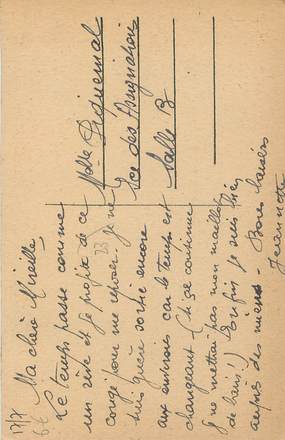 17/7
Ma chère Mireille,
Le temps passe comme
un rêve et je profite de ce
congé pour me reposer. Je ne
suis guère sortie encore
aux environs car le temps est
changeant (Si ça continue
je ne mettrai pas mon maillot
de bain!) Enfin je suis bien
auprès des miens - Bons baisers
Jeannette
Mlle Piquemal
Sce des Assignations
Salle B
23
6€